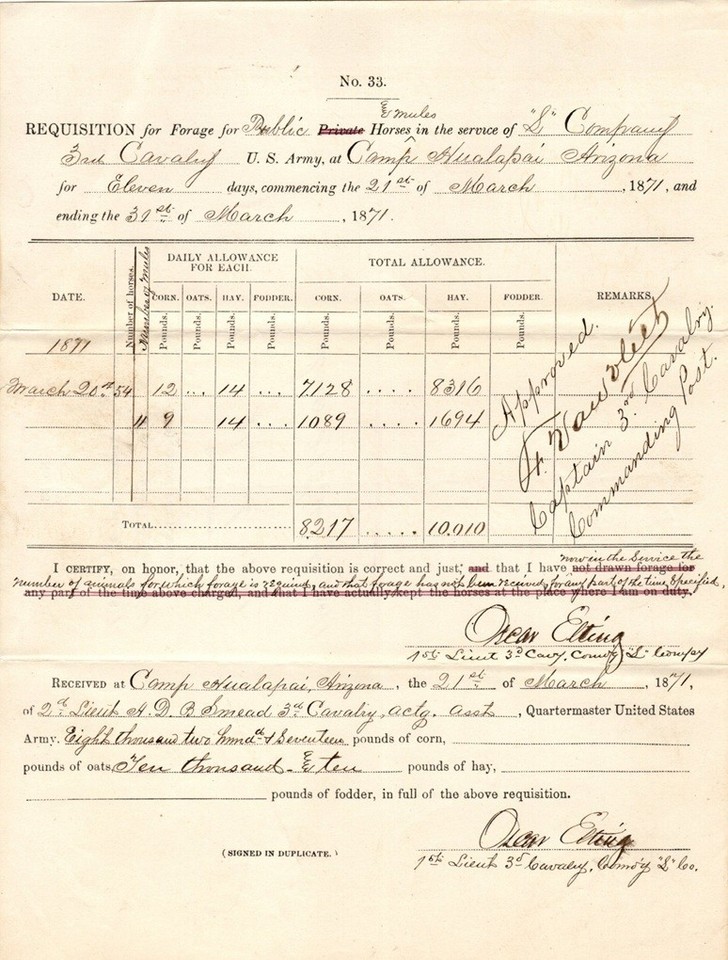 No. 33.
& mules
REQUISITION for Forage for Public Private Horses in the service of "L" Company
3rd Cavalry U. S. Army, at Camp Hualapai Arizona
for Eleven days, commencing the 21st of March, 1871, and
ending the 31st of March, 1871.
DATE. Number of horses. Number of Mules DAILY ALLOWANCE FOR EACH. TOTAL ALLOWANCE. REMARKS.
CORN. OATS. HAY. FODDER. CORN. OATS. HAY. FODDER.
Pounds. Pounds. Pounds. Pounds. Pounds. Pounds. Pounds. Pounds.
1871
March 20th 54 12 ... 14 ... 7128 .... 8316
11 9 14 ... 1089 .... 1694
TOTAL 8.217 ..... 10.010
Approved.
F. Van Vliet
Captain 3rd Cavalry.
Commanding Post.
now in the service the
I CERTIFY, on honor, that the above requisition is correct and just; and that I have not drawn forage for
number of animals for which forage is required, and that forage has not been received for any part of the time specified,
any part of the time above charged, and that I have actually kept the horses at the place where I am on duty.
Oscar Elting
1st Lieut 3d Cavy, Comd'g "L" Compy
RECEIVED at Camp Hualapai, Arizona, the 21st of March, 1871,
of 2d Lieut A. D. B Smead 3rd Cavalry, actg. asst, Quartermaster United States
Army. Eight thousand two hundd & Seventeen pounds of corn,
pounds of oats, Ten thousand & ten pounds of hay,
pounds of fodder, in full of the above requisition.
Oscar Elting
(SIGNED IN DUPLICATE.)
1st Lieut 3d Cavalry, Comd'g "L" Co.